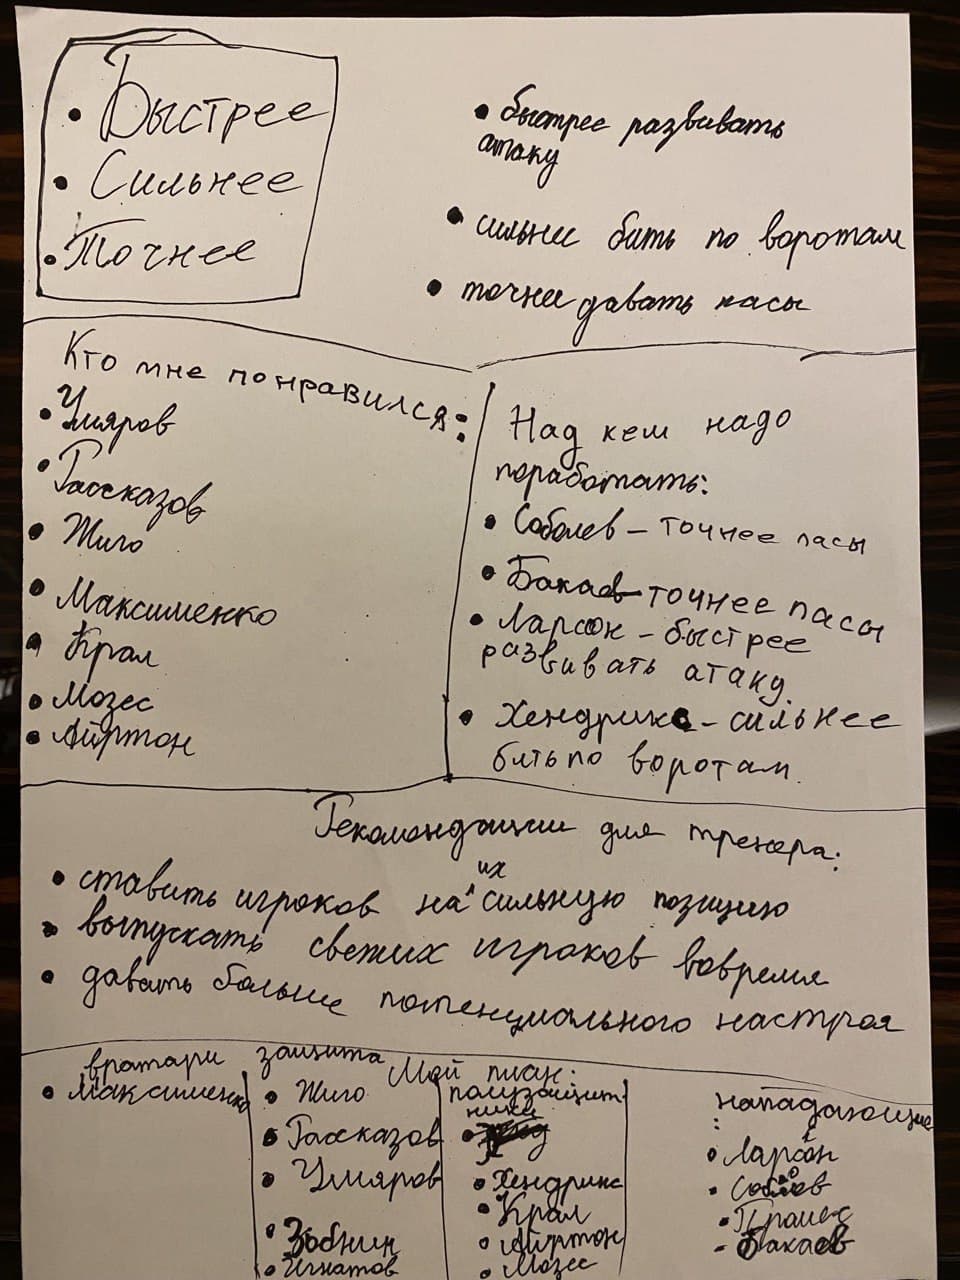 • Быстрее
• Сильнее
• Точнее
• быстрее развивать
атаку
• сильнее бить по воротам
• точнее давать пасы
Кто мне понравился:
• Умяров
• Рассказов
• Жиго
• Максименко
• Крал
• Мозес
• Айртон
Над кем надо
поработать:
• Соболев – точнее пасы
• Бакаев – точнее пасы
• Ларсон – быстрее
развивать атаку.
• Хендрикс – сильнее
бить по воротам.
Рекомендации для тренера:
• ставить игроков на их сильную позицию
• выпускать свежих игроков вовремя
• давать больше потенциального настроя
Мой план:
вратари
• Максименко
защита
• Жиго
• Рассказов
• Умяров
• Зобнин
• Игнатов
полузащит-
ники
• Хендрикс
• Крал
• Айртон
• Мозес
нападающие:
• Ларсон
• Соболев
• Промес
• Бакаев